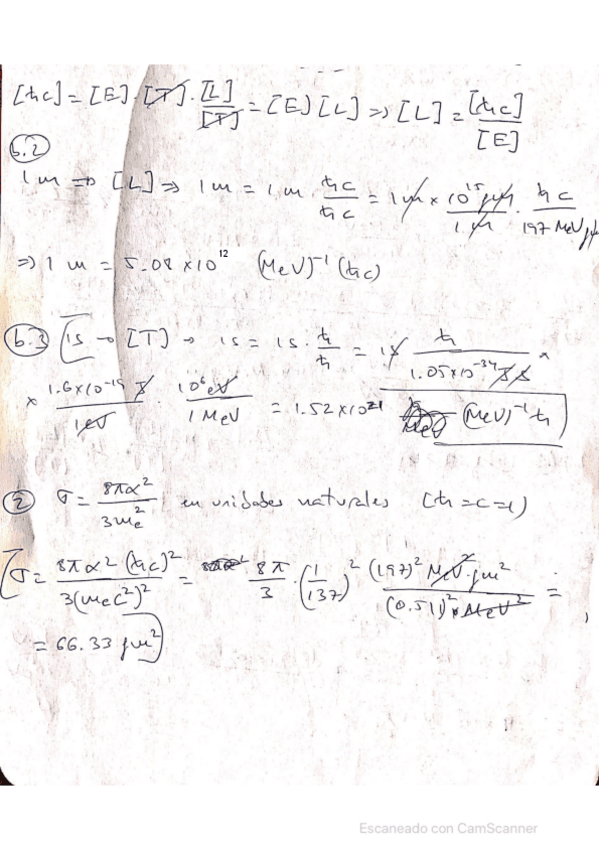 [ħc] = [E]·[T]·[L]/[T] = [E][L] ⇒ [L] = [ħc]/[E]
b.2
1 m ⇒ [L] ⇒ 1 m = 1 m · ħc/ħc = 1 m × 10^15 fm/1 m · ħc/197 MeV fm
⇒ 1 m = 5.08 × 10^12 (MeV)^-1 (ħc)
b.3 1s → [T] → 1s = 1s · ħ/ħ = 1s ħ/1.05×10^-34 J s ×
× 1.6×10^-19 J/1 eV · 10^6 eV/1 MeV = 1.52×10^21 (MeV)^-1 ħ
2 σ = 8πα^2/3me^2 en unidades naturales (ħ=c=1)
σ = 8πα^2(ħc)^2/3(mec^2)^2 = 8π/3 · (1/137)^2 (197)^2 MeV^2 fm^2/(0.51)^2 × MeV^2 =
= 66.33 fm^2
Escaneado con CamScanner